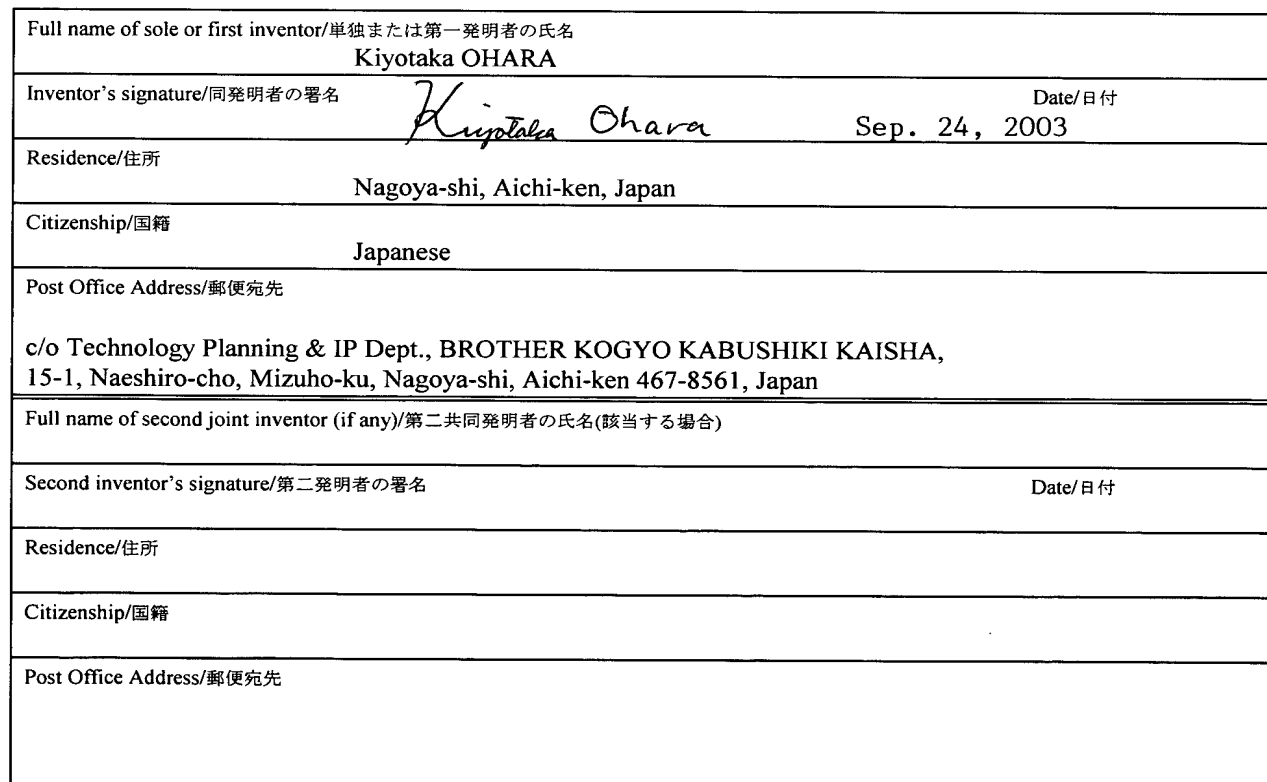 Full name of sole or first inventor/単独または第一発明者の氏名
Kiyotaka OHARA
Inventor's signature/同発明者の署名 Date/日付
Kiyotaka Ohara Sep. 24, 2003
Residence/住所
Nagoya-shi, Aichi-ken, Japan
Citizenship/国籍
Japanese
Post Office Address/郵便宛先
c/o Technology Planning & IP Dept., BROTHER KOGYO KABUSHIKI KAISHA,
15-1, Naeshiro-cho, Mizuho-ku, Nagoya-shi, Aichi-ken 467-8561, Japan
Full name of second joint inventor (if any)/第二共同発明者の氏名(該当する場合)
Second inventor's signature/第二発明者の署名 Date/日付
Residence/住所
Citizenship/国籍
Post Office Address/郵便宛先